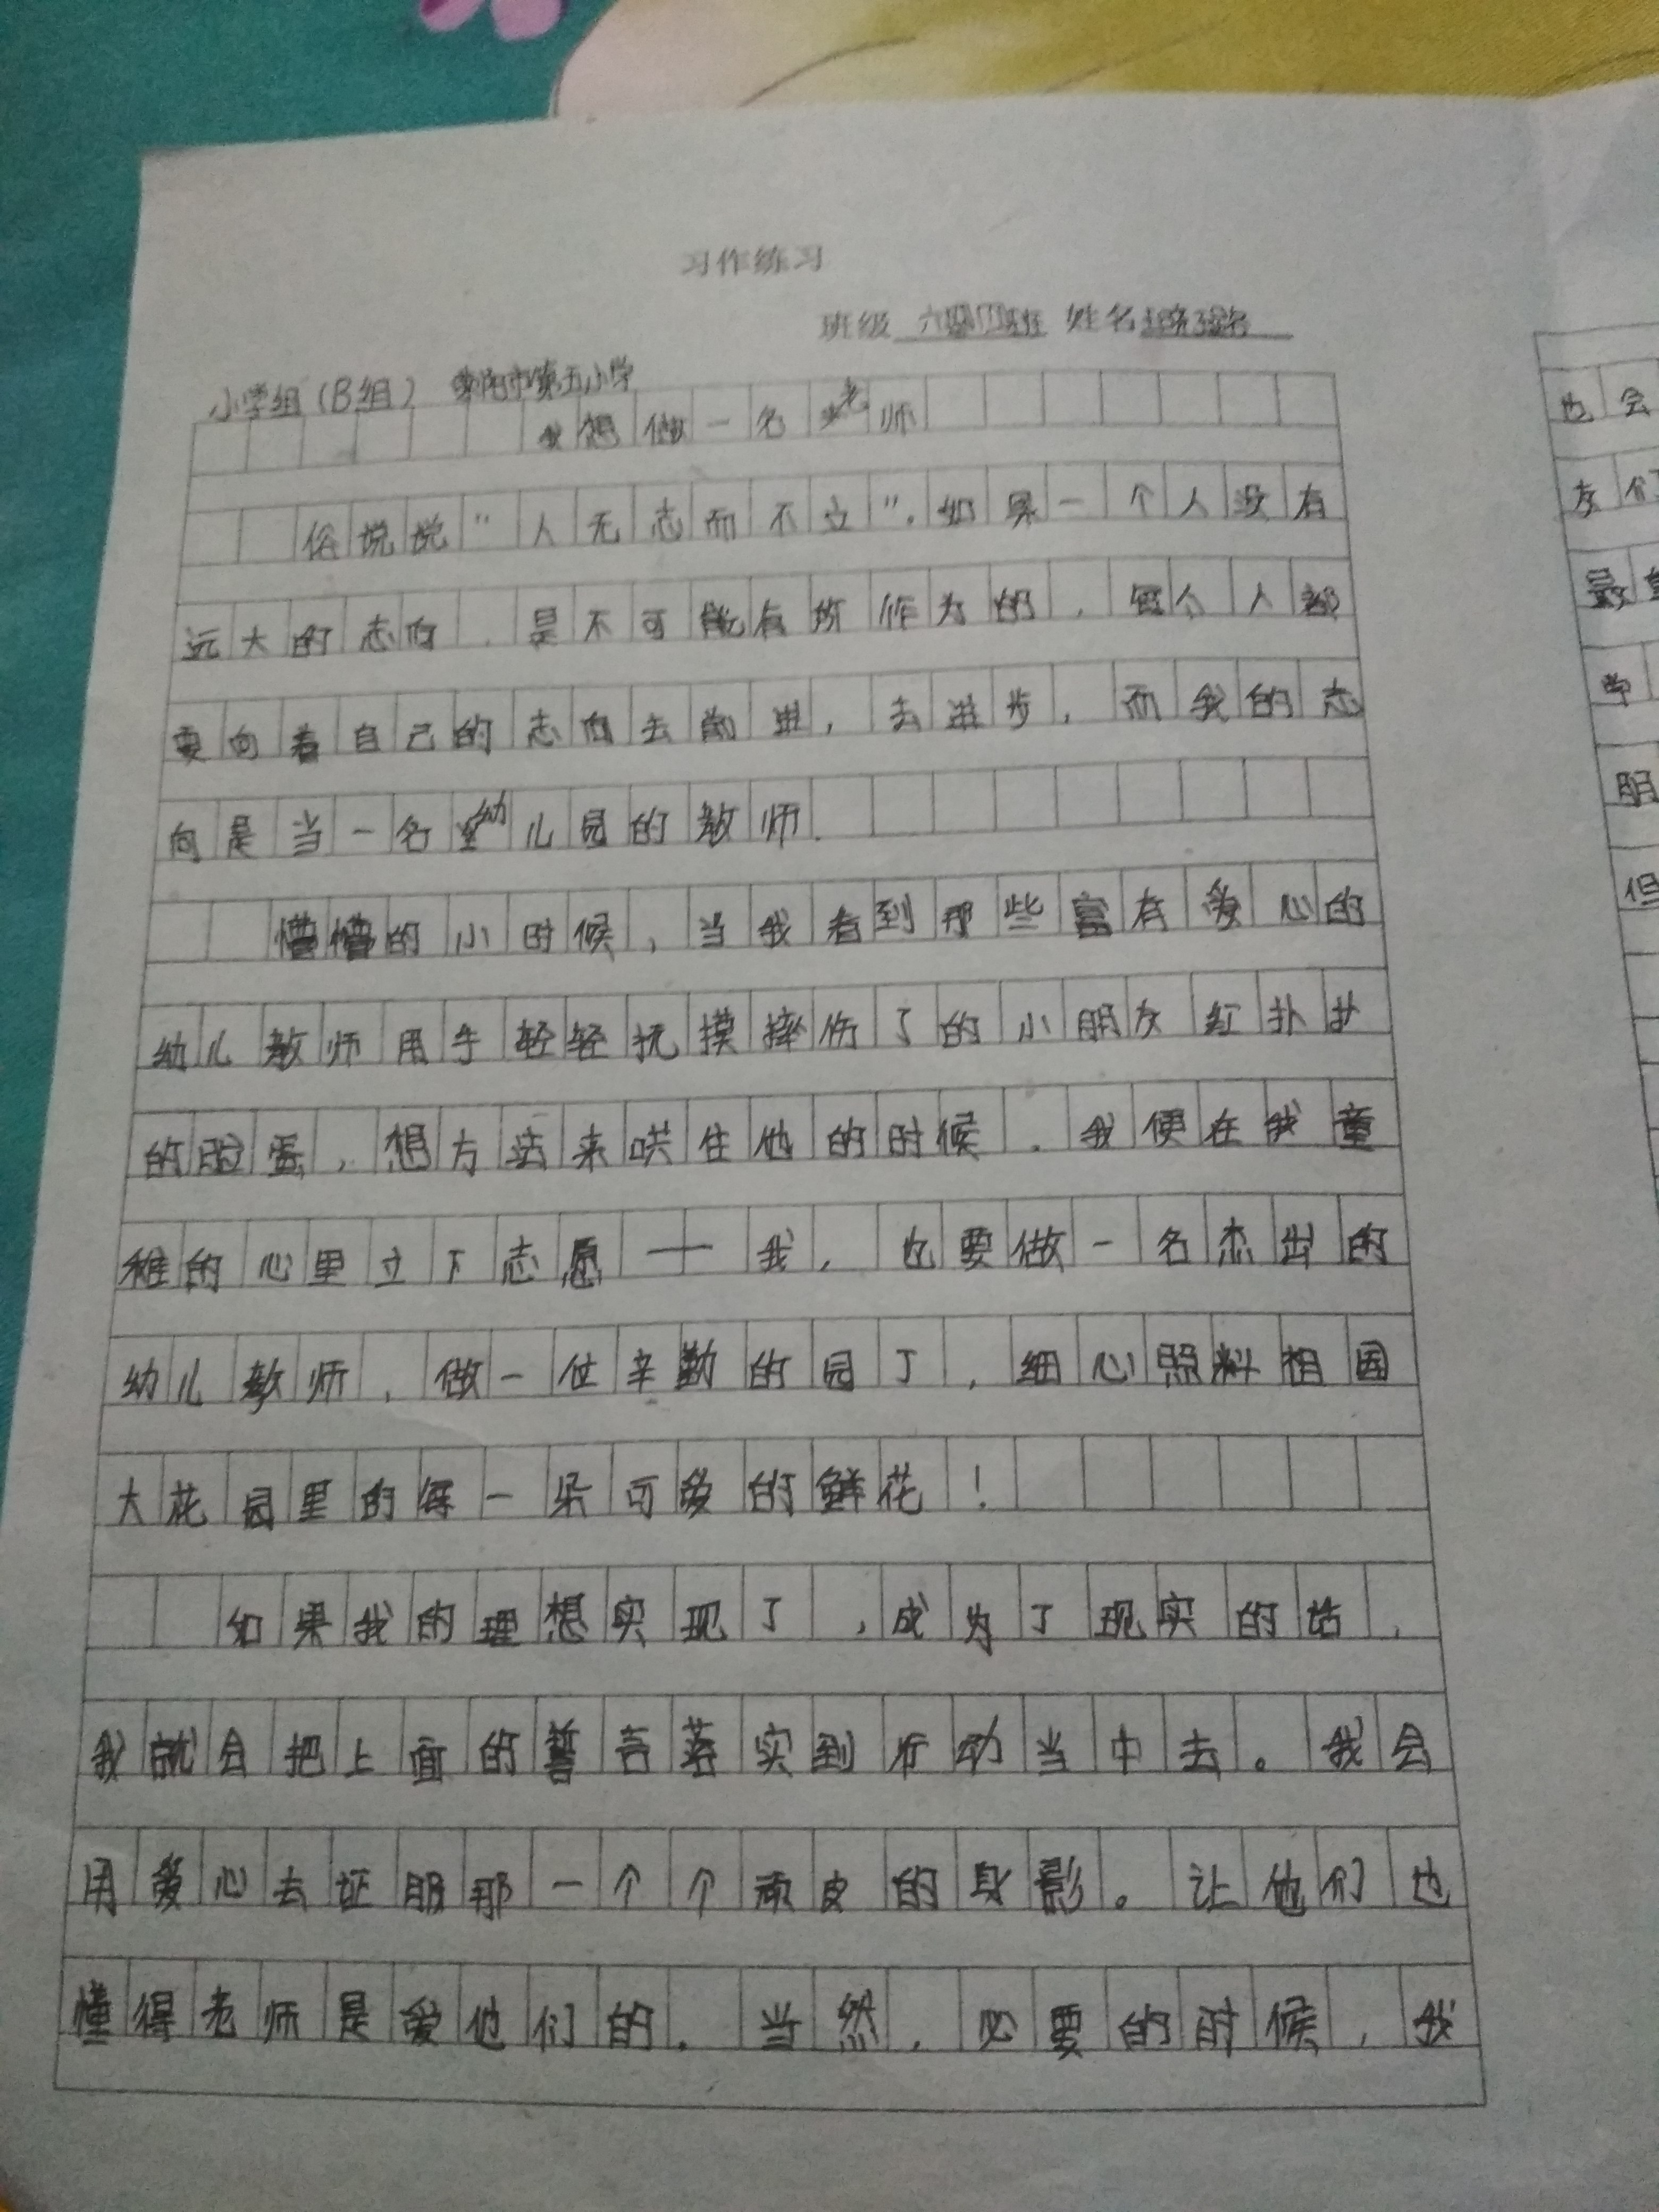 习作练习
班级 六 四班 姓名
小学组（B组） 阳市第五小学
我想做一名老师
俗说说"人无志而不立"。如果一个人没有
远大的志向，是不可能有所作为的，每个人都
要向着自己的志向去前进，去进步，而我的志
向是当一名幼儿园的教师。
懵懵的小时候，当我看到那些富有爱心的
幼儿教师用手轻轻抚摸摔伤了的小朋友红扑扑
的脸蛋，想方法来哄住他的时候。我便在我童
稚的心里立下志愿——我，也要做一名杰出的
幼儿教师，做一位辛勤的园丁，细心照料祖国
大花园里的每一朵可爱的鲜花！
如果我的理想实现了，成为了现实的话，
我就会把上面的誓言落实到行动当中去。我会
用爱心去征服那一个个顽皮的身影。让他们也
懂得老师是爱他们的。当然，必要的时候，我
也会
友们
最
学
朋
但